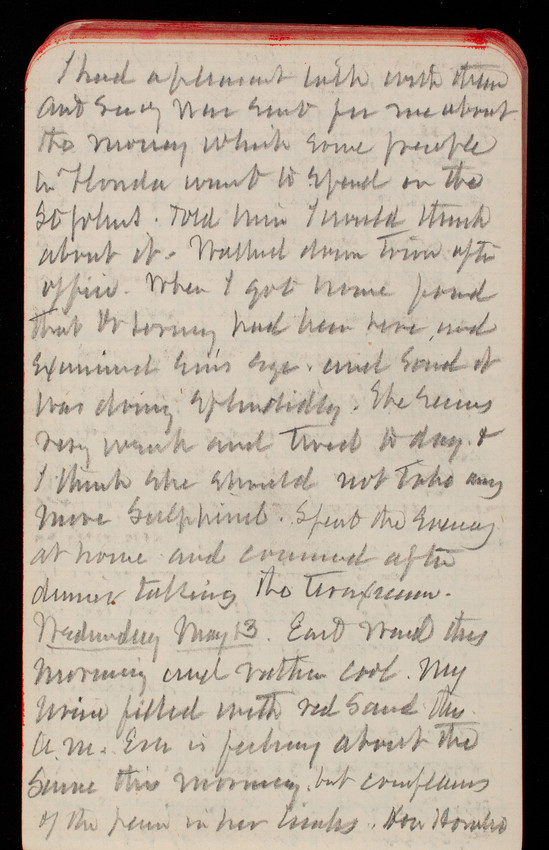 I had a pleasant talk with them
and Senay was sent for me about
the money which some people
in Florida want to spend on the
St Johns. Told him I would think
about it. Walked down Town after
office. When I got home found
that Dr Loring had been here and
examined Em's eye. and said it
was doing splendidly. She seems
very weak and tired to day &
I think she should not take any
more Sulphind. Spent the Evening
at home and commenced after
dinner taking the Taraxacum.
Wednesday May 13. East wind this
morning and rather cool. My
urine filled with red sand this
a.m. Em is feeling about the
same this morning. but complains
of the pain in her limbs.